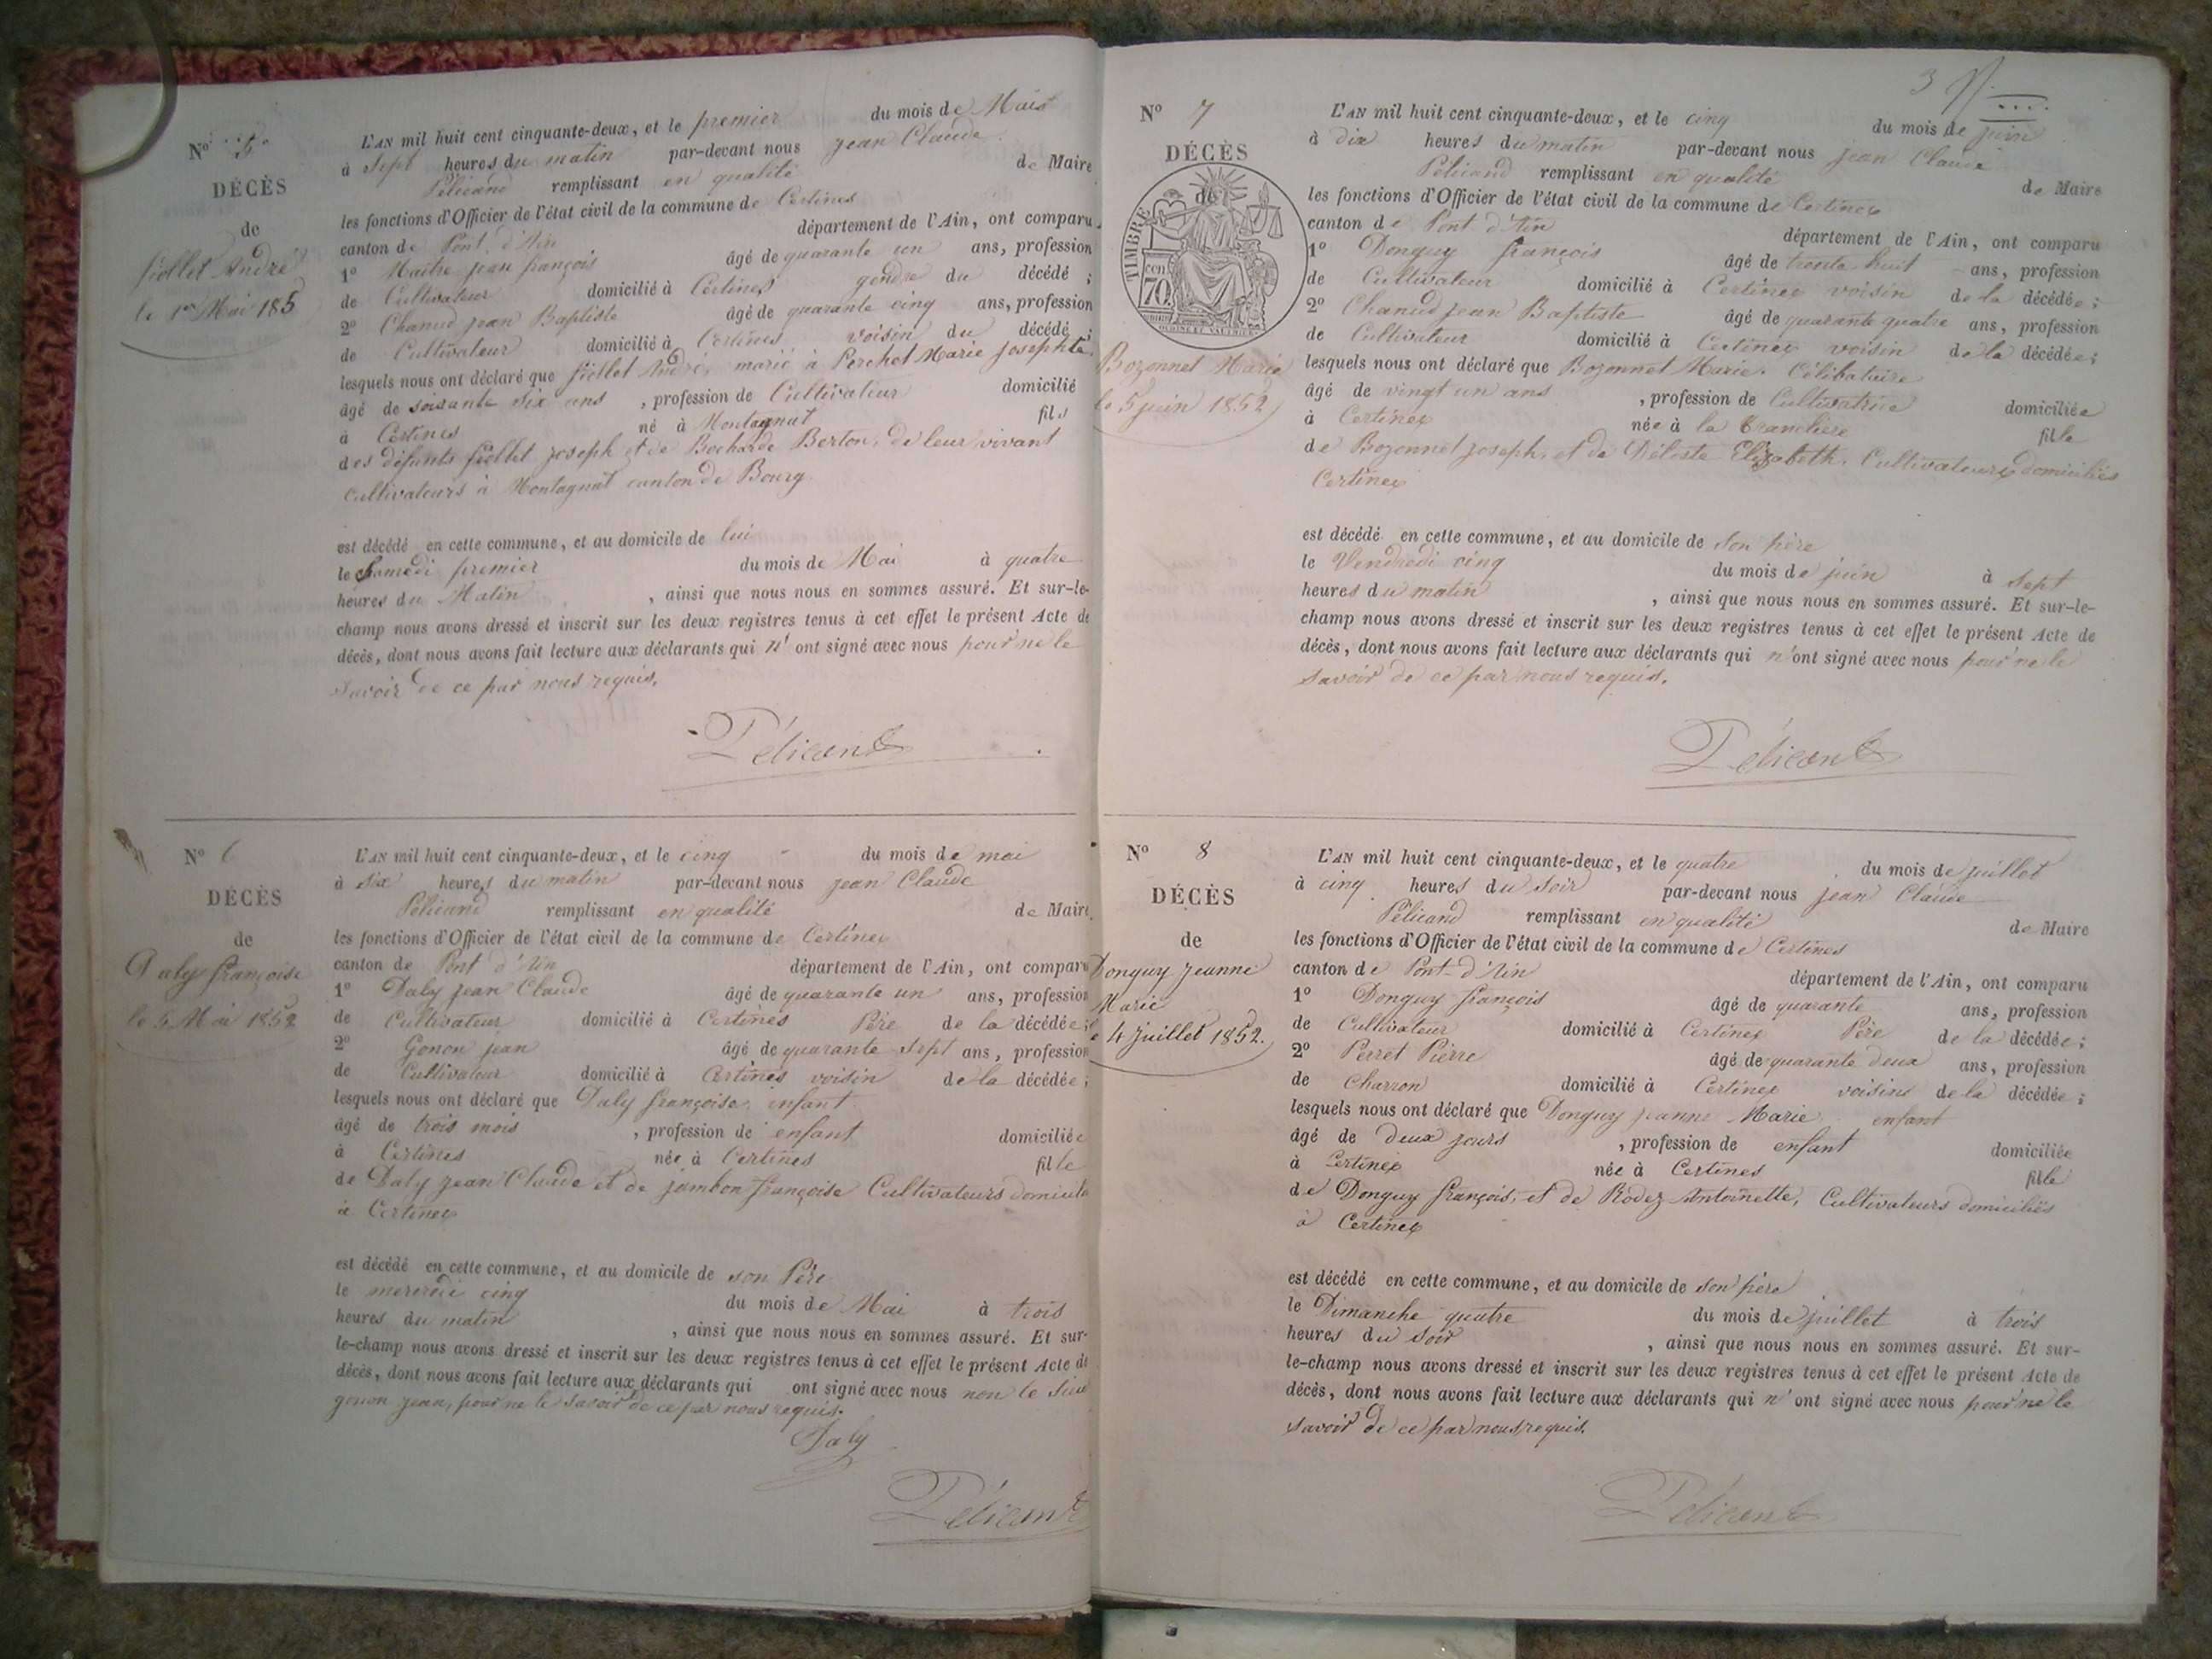 Nº 5
DÉCÈS
de
fiollet André
le 1er Mai 185
L'AN mil huit cent cinquante-deux, et le premier du mois de Mai
à Sept heures du matin par-devant nous jean Claude
Pélicand remplissant en qualité de Maire
les fonctions d'Officier de l'état civil de la commune de Certines
canton de Pont d'Ain département de l'Ain, ont comparu
1º Maitre jean françois âgé de quarante un ans, profession
de Cultivateur domicilié à Certines gendre du décédé ;
2º Chanud jean Baptiste âgé de quarante cinq ans, profession
de Cultivateur domicilié à Certines voisin du décédé ;
lesquels nous ont déclaré que fiollet André, marié à Perchet Marie josephte
âgé de soisante six ans , profession de Cultivateur domicilié
à Certines né à Montagnat fils
des défunts fiollet joseph et de Bocharde Berton, de leur vivant
cultivateurs à Montagnat canton de Bourg
est décédé en cette commune, et au domicile de lui
le Samedi premier du mois de Mai à quatre
heures du Matin , ainsi que nous nous en sommes assuré. Et sur-le-
champ nous avons dressé et inscrit sur les deux registres tenus à cet effet le présent Acte de
décès, dont nous avons fait lecture aux déclarants qui n' ont signé avec nous pour ne le
savoir de ce par nous requis.
Pélicand
Nº 6
DÉCÈS
de
Daly françoise
le 5 Mai 1852
L'AN mil huit cent cinquante-deux, et le cinq du mois de mai
à six heures du matin par-devant nous jean Claude
Pélicand remplissant en qualité de Maire
les fonctions d'Officier de l'état civil de la commune de Certines
canton de Pont d'Ain département de l'Ain, ont comparu
1º Daly jean Claude âgé de quarante un ans, profession
de Cultivateur domicilié à Certines Père de la décédée ;
2º Gonon jean âgé de quarante sept ans, profession
de Cultivateur domicilié à Certines voisin de la décédée ;
lesquels nous ont déclaré que Daly françoise, enfant
âgé de trois mois , profession de enfant domiciliée
à Certines née à Certines fille
de Daly jean Claude et de jambon françoise Cultivateurs domicilé
à Certines
est décédé en cette commune, et au domicile de son Père
le mercredi cinq du mois de Mai à trois
heures du matin , ainsi que nous nous en sommes assuré. Et sur-
le-champ nous avons dressé et inscrit sur les deux registres tenus à cet effet le présent Acte de
décès, dont nous avons fait lecture aux déclarants qui ont signé avec nous non le Sieur
gonon jean, pour ne le savoir de ce par nous requis.
Daly
Pélicand
3
Nº 7
DÉCÈS
de
TIMBRE
70
Bozonnet Marie
le 5 juin 1852
L'AN mil huit cent cinquante-deux, et le cinq du mois de juin
à dix heures du matin par-devant nous jean Claude
Pélicand remplissant en qualité de Maire
les fonctions d'Officier de l'état civil de la commune de Certines
canton de Pont d'Ain département de l'Ain, ont comparu
1º Donguy françois âgé de trente huit ans, profession
de Cultivateur domicilié à Certines voisin de la décédée ;
2º Chanud jean Baptiste âgé de quarante quatre ans, profession
de Cultivateur domicilié à Certines voisin de la décédée ;
lesquels nous ont déclaré que Bozonnet Marie. Célibataire
âgé de vingt un ans , profession de Cultivatrice domiciliée
à Certines née à la tranclière fille
de Bozonnet joseph, et de Déleste Elizabeth. Cultivateurs domiciliés
Certines
est décédé en cette commune, et au domicile de son père
le Vendredi cinq du mois de juin à sept
heures du matin , ainsi que nous nous en sommes assuré. Et sur-le-
champ nous avons dressé et inscrit sur les deux registres tenus à cet effet le présent Acte de
décès, dont nous avons fait lecture aux déclarants qui n'ont signé avec nous pour ne le
savoir de ce par nous requis.
Pélicand
Nº 8
DÉCÈS
de
Donguy jeanne
Marie
le 4 juillet 1852.
L'AN mil huit cent cinquante-deux, et le quatre du mois de juillet
à cinq heures du soir par-devant nous jean Claude
Pélicand remplissant en qualité de Maire
les fonctions d'Officier de l'état civil de la commune de Certines
canton de Pont-d'Ain département de l'Ain, ont comparu
1º Donguy françois âgé de quarante ans, profession
de Cultivateur domicilié à Certines Père de la décédée ;
2º Perret Pierre âgé de quarante deux ans, profession
de Charron domicilié à Certines voisins de la décédée ;
lesquels nous ont déclaré que Donguy jeanne Marie enfant
âgé de deux jours , profession de enfant domiciliée
à Certines née à Certines fille
de Donguy françois, et de Rodez Antoinette, Cultivateurs domiciliés
à Certines
est décédé en cette commune, et au domicile de son père
le Dimanche quatre du mois de juillet à trois
heures du soir , ainsi que nous nous en sommes assuré. Et sur-
le-champ nous avons dressé et inscrit sur les deux registres tenus à cet effet le présent Acte de
décès, dont nous avons fait lecture aux déclarants qui n' ont signé avec nous pour ne le
savoir de ce par nous requis.
Pélicand